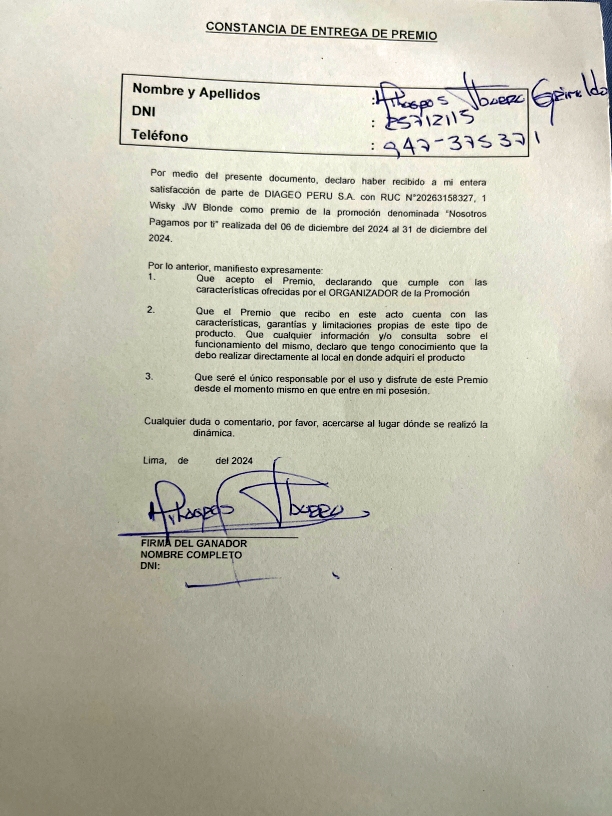 CONSTANCIA DE ENTREGA DE PREMIO
Nombre y Apellidos : Milagros Grimaldo
DNI : 25712115
Teléfono : 947-375371
Por medio del presente documento, declaro haber recibido a mi entera
satisfacción de parte de DIAGEO PERU S.A. con RUC N°20263158327, 1
Wisky JW Blonde como premio de la promoción denominada "Nosotros
Pagamos por ti" realizada del 06 de diciembre del 2024 al 31 de diciembre del
2024.
Por lo anterior, manifiesto expresamente:
1. Que acepto el Premio, declarando que cumple con las
características ofrecidas por el ORGANIZADOR de la Promoción
2. Que el Premio que recibo en este acto cuenta con las
características, garantías y limitaciones propias de este tipo de
producto. Que cualquier información y/o consulta sobre el
funcionamiento del mismo, declaro que tengo conocimiento que la
debo realizar directamente al local en donde adquirí el producto
3. Que seré el único responsable por el uso y disfrute de este Premio
desde el momento mismo en que entre en mi posesión.
Cualquier duda o comentario, por favor, acercarse al lugar dónde se realizó la
dinámica.
Lima, de del 2024
Milagros
FIRMA DEL GANADOR
NOMBRE COMPLETO
DNI: